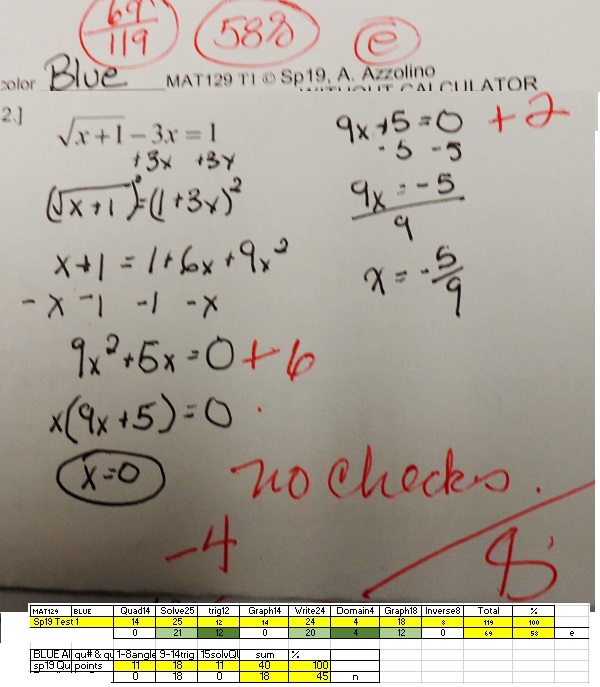 69/119 58% e
color Blue MAT129 T1 © Sp19, A. Azzolino
WITHOUT CALCULATOR
2.]
√x+1 − 3x = 1
+3x +3x
(√x+1)² = (1+3x)²
x+1 = 1+6x+9x²
-x -1 -1 -x
9x²+5x=0 +6
x(9x+5)=0
x=0
9x+5=0 +2
-5 -5
9x = -5
9
x = -5/9
no checks.
-4
8
MAT129 BLUE Quad14 Solve25 trig12 Graph14 Write24 Domain4 Graph18 Inverse8 Total %
Sp19 Test 1 14 25 12 14 24 4 18 8 119 100
0 21 12 0 20 4 12 0 69 58 e
BLUE Al qu# & qu 1-8angle 9-14trig 15solvQU sum %
sp19 Qu points 11 18 11 40 100
0 18 0 18 45 n